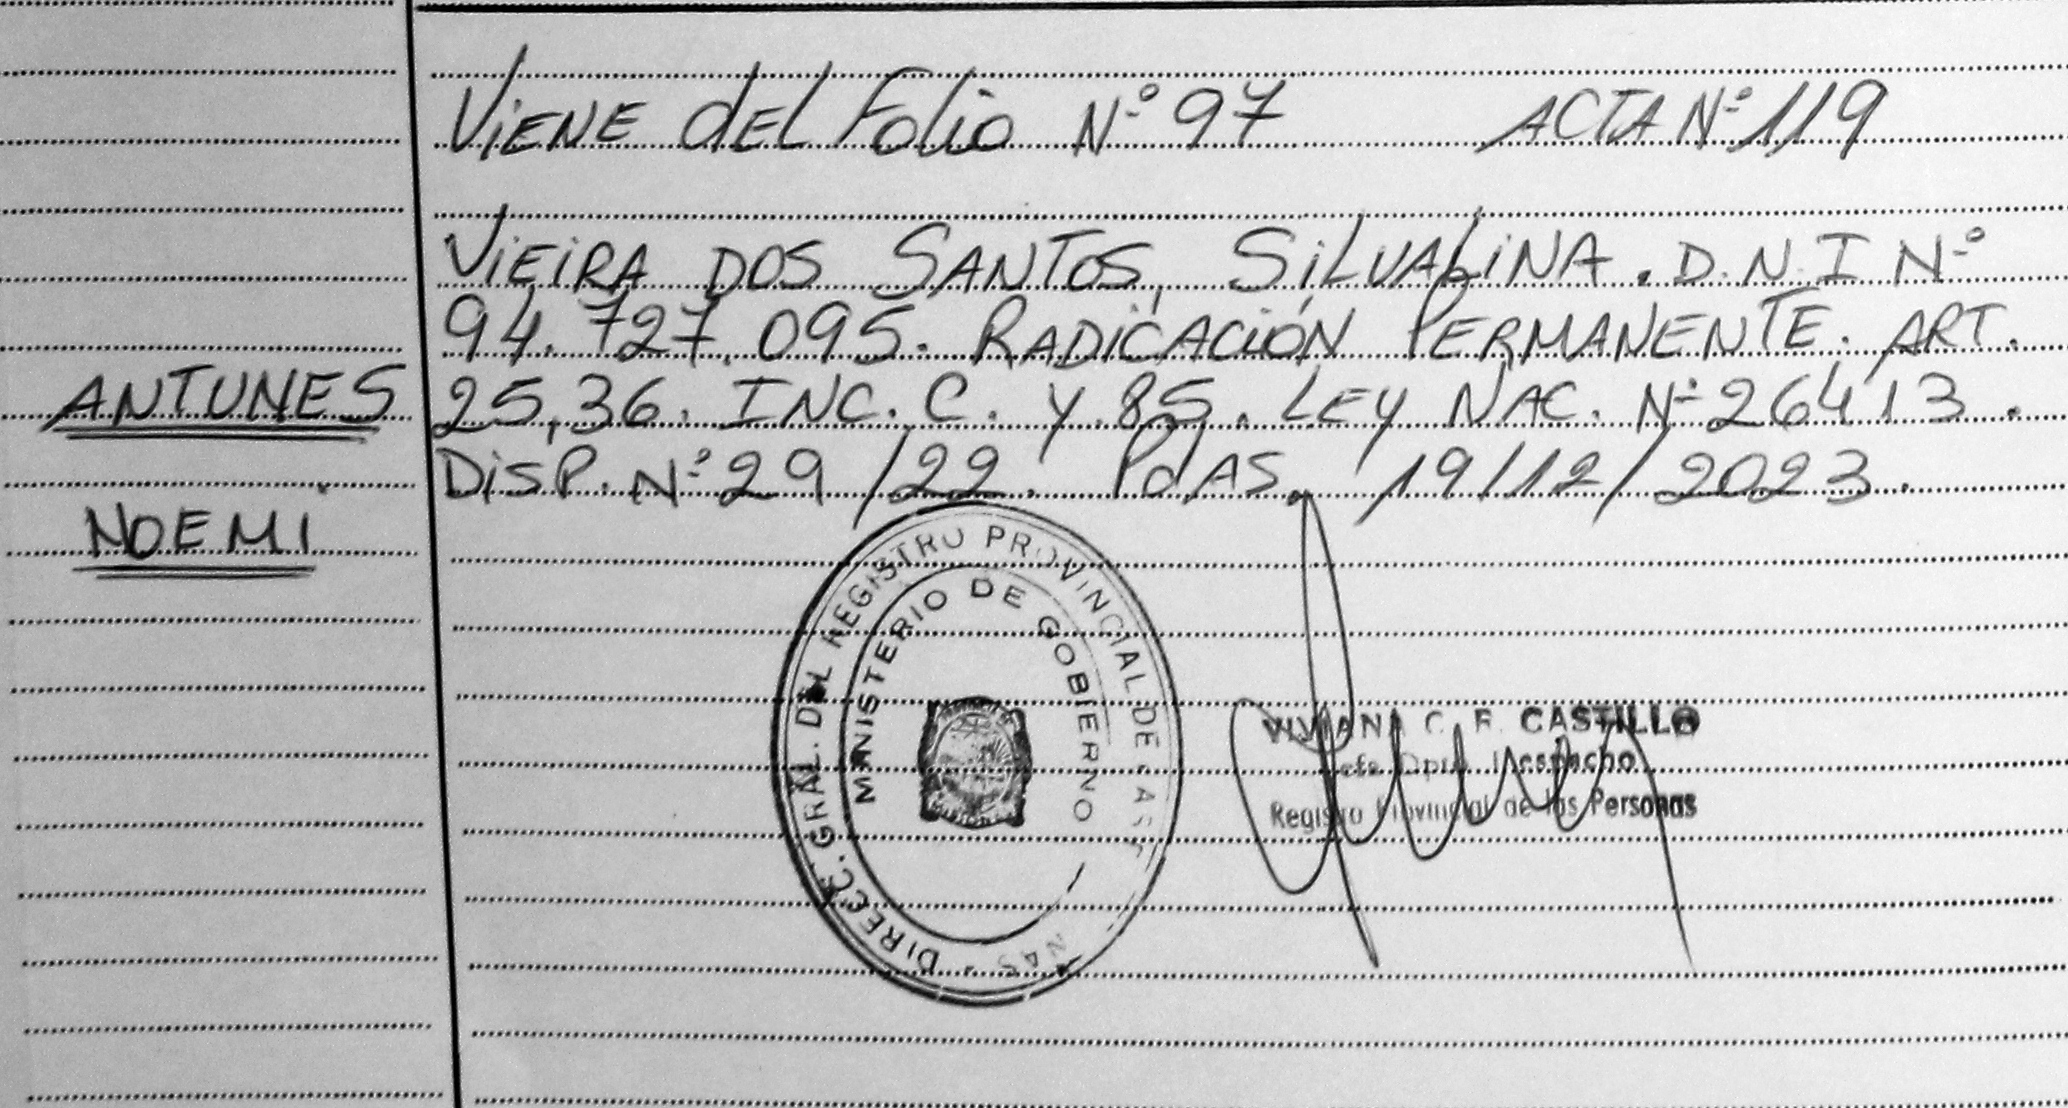 Viene del Folio Nº 97 ACTA Nº 119
VIEIRA DOS SANTOS, SILVALINA. D.N.I Nº
94.727.095. RADICACIÓN PERMANENTE. ART.
ANTUNES
25,36. INC. C. Y 85. LEY NAC. Nº 26413.
DISP. Nº 29/22. PdAS, 19/12/2023.
NOEMI
DIRECC. GRAL. DEL REGISTRO PROVINCIAL DE LAS
MINISTERIO DE GOBIERNO
VIVIANA C. F. CASTILLO
Jefe Dpto. Despacho
Registro Provincial de las Personas